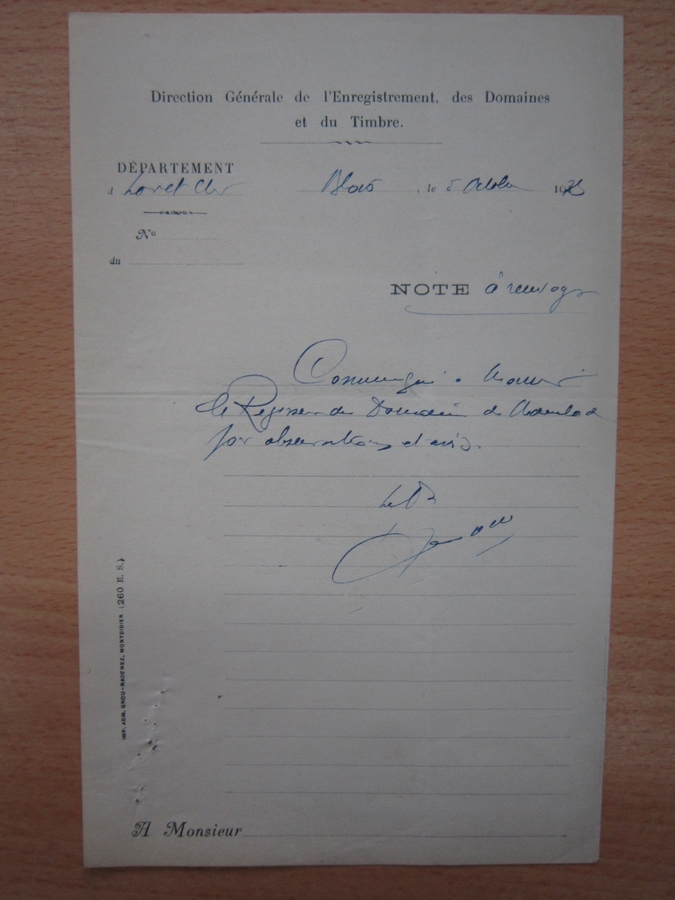 Direction Générale de l'Enregistrement, des Domaines
et du Timbre.
DÉPARTEMENT
d Loir et Cher
Blois, le 5 Octobre 19
Nº
du
NOTE à renvoyer
Communiqué à Monsieur
le Receveur des Domaines de
pour observations et avis.
Le Dr
IMP. ADM. GROU-RADENEZ, MONTDIDIER (260 E. S.)
A Monsieur